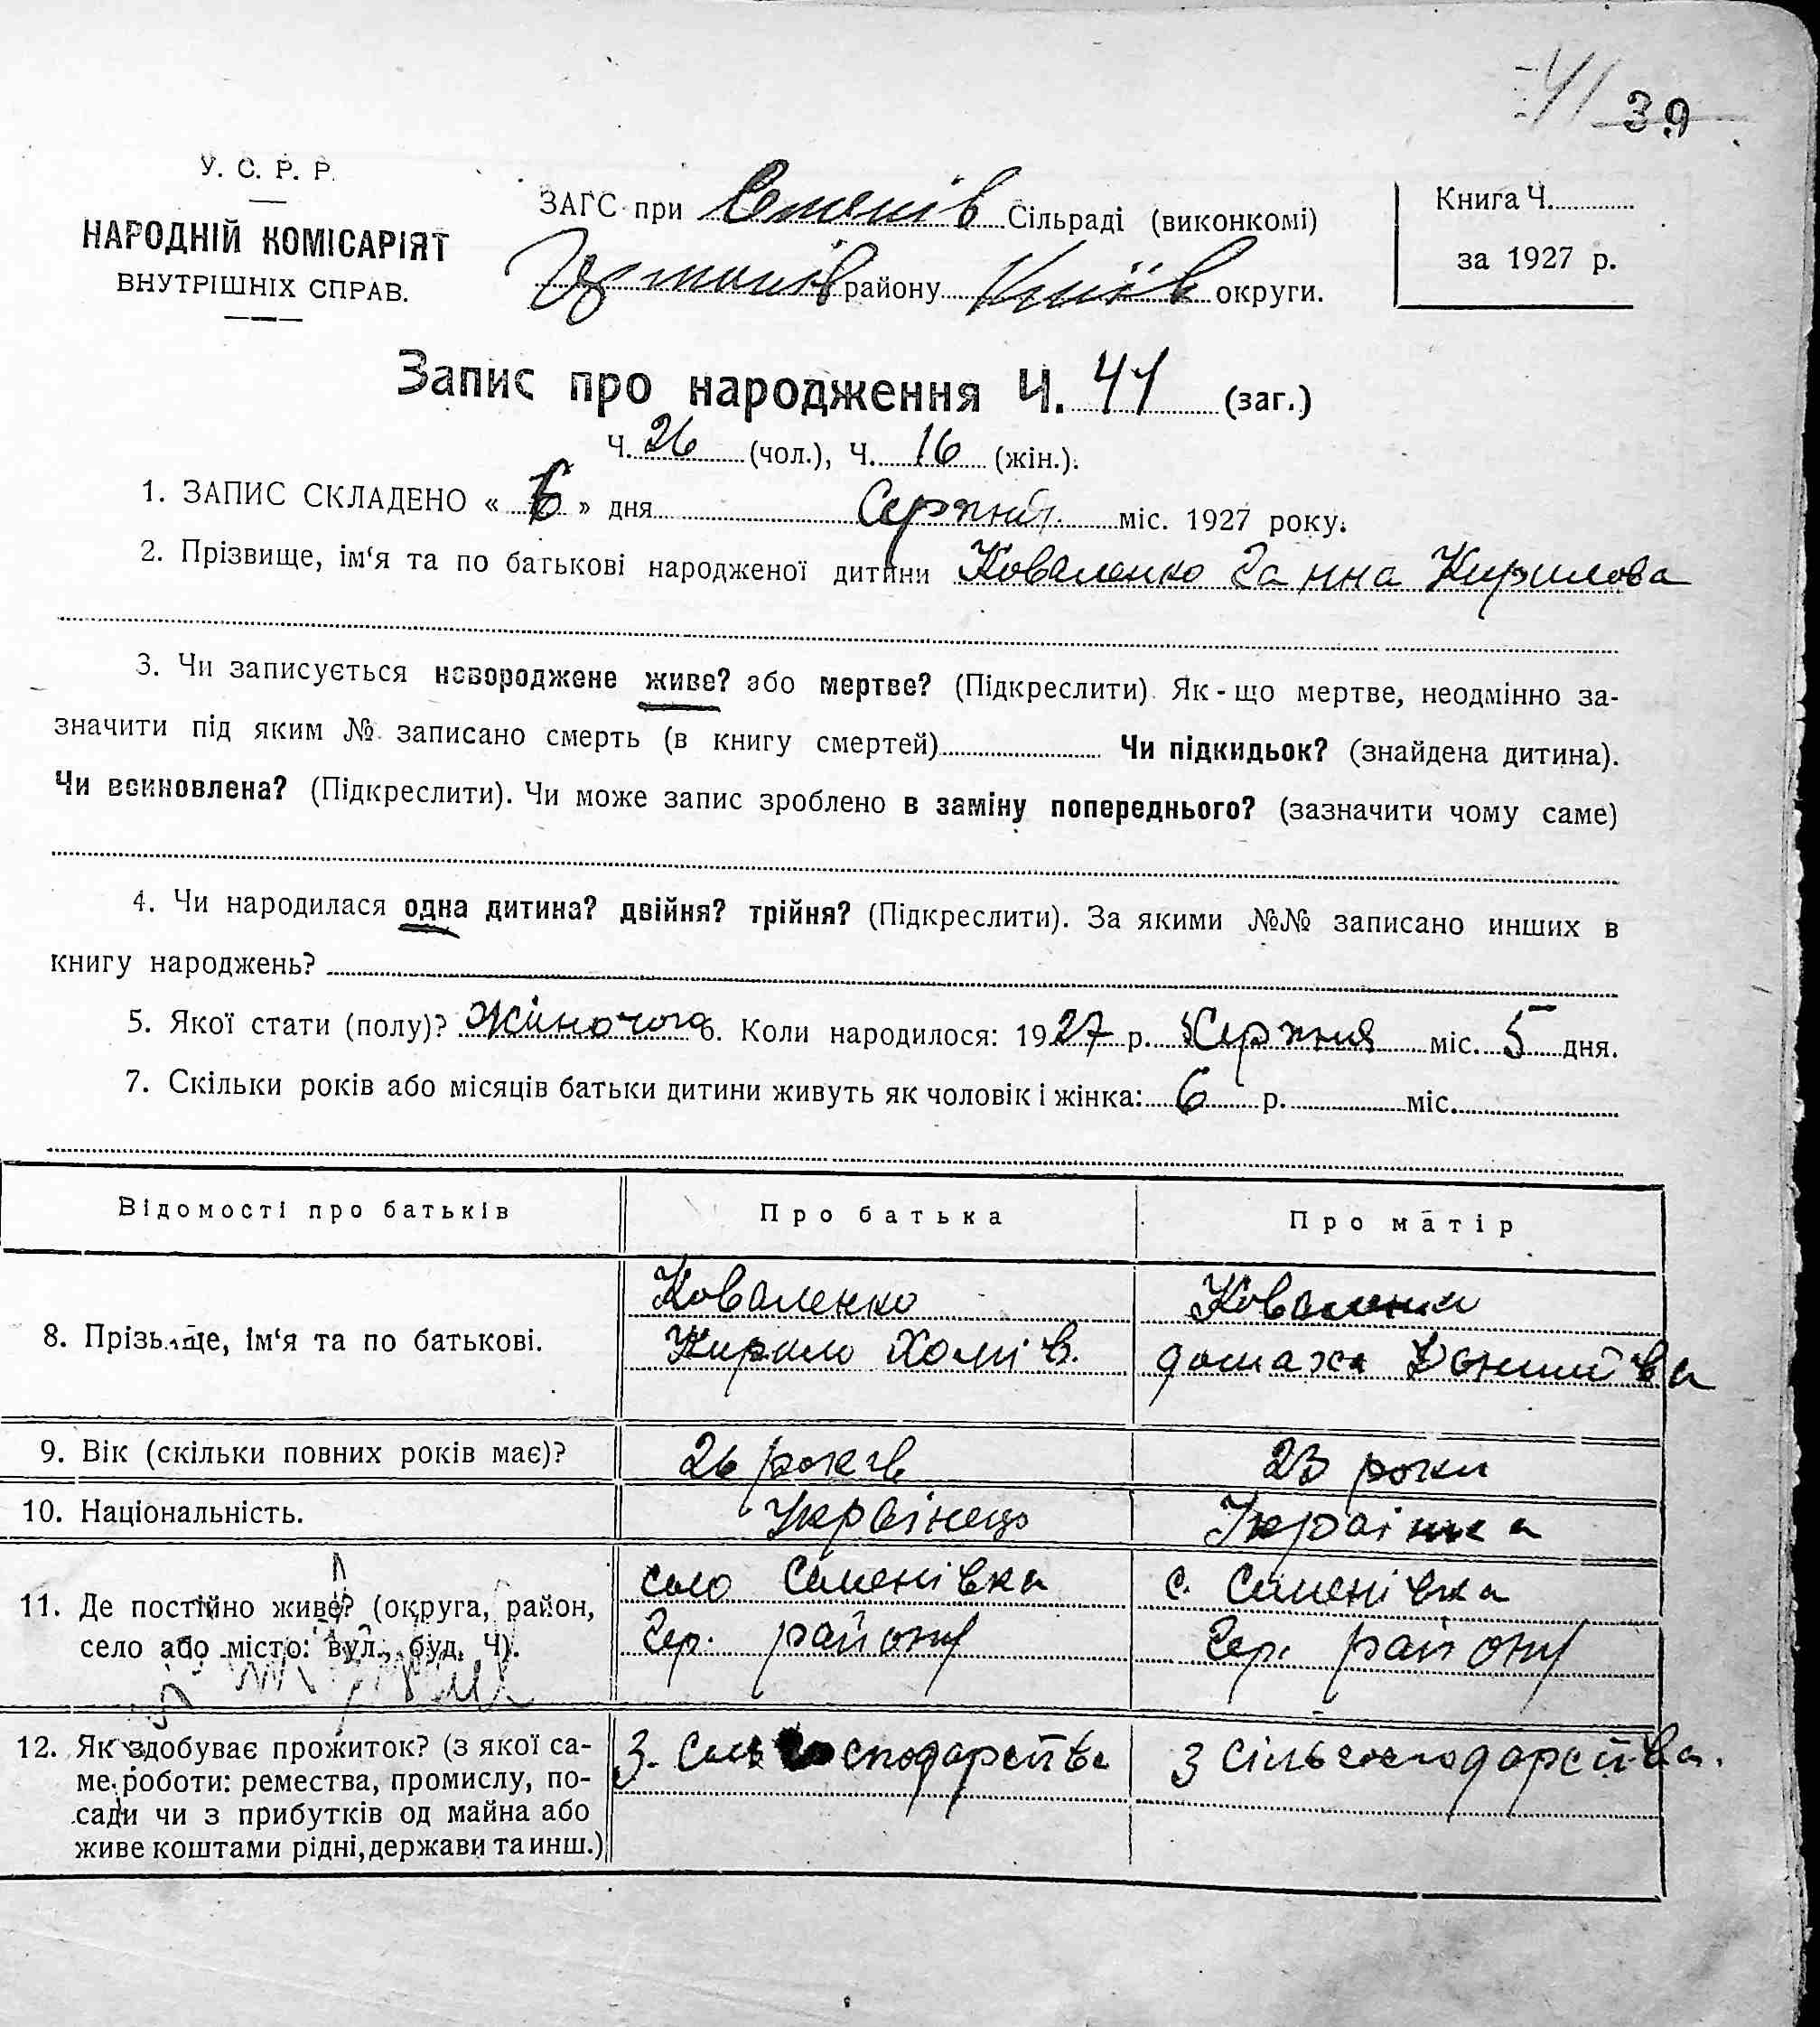 41 39
У. С. Р. Р.
НАРОДНІЙ КОМІСАРІЯТ
ВНУТРІШНІХ СПРАВ.
ЗАГС при Семенів Сільраді (виконкомі)
району Київ округи.
Книга Ч.
за 1927 р.
Запис про народження Ч. 41 (заг.)
Ч. 26 (чол.), Ч. 16 (жін.).
1. ЗАПИС СКЛАДЕНО « 6 » дня Серпня міс. 1927 року.
2. Прізвище, ім‘я та по батькові народженої дитини Коваленко Ганна Кирилова
3. Чи записується новороджене живе? або мертве? (Підкреслити). Як-що мертве, неодмінно за-
значити під яким № записано смерть (в книгу смертей) Чи підкидьок? (знайдена дитина).
Чи всиновлена? (Підкреслити). Чи може запис зроблено в заміну попереднього? (зазначити чому саме)
4. Чи народилася одна дитина? двійня? трійня? (Підкреслити). За якими №№ записано инших в
книгу народжень?
5. Якої стати (полу)? Жіночого 6. Коли народилося: 1927 р. Серпня міс. 5 дня.
7. Скільки років або місяців батьки дитини живуть як чоловік і жінка: 6 р. міс.
Відомості про батьків Про батька Про матір
8. Прізвище, ім‘я та по батькові.
Коваленко
Кирило Хомів.
Коваленко
домаха
9. Вік (скільки повних років має)? 26 років 23 роки
10. Національність. Українець Українка
11. Де постійно живе? (округа, район,
село або місто: вул., буд. Ч).
село Семенівка
Гер. району
с. Семенівка
Гер. району
12. Як здобуває прожиток? (з якої са-
ме роботи: ремества, промислу, по-
сади чи з прибутків од майна або
живе коштами рідні, держави та инш.)
З. Сільгосподарства
З сільгосподарства.